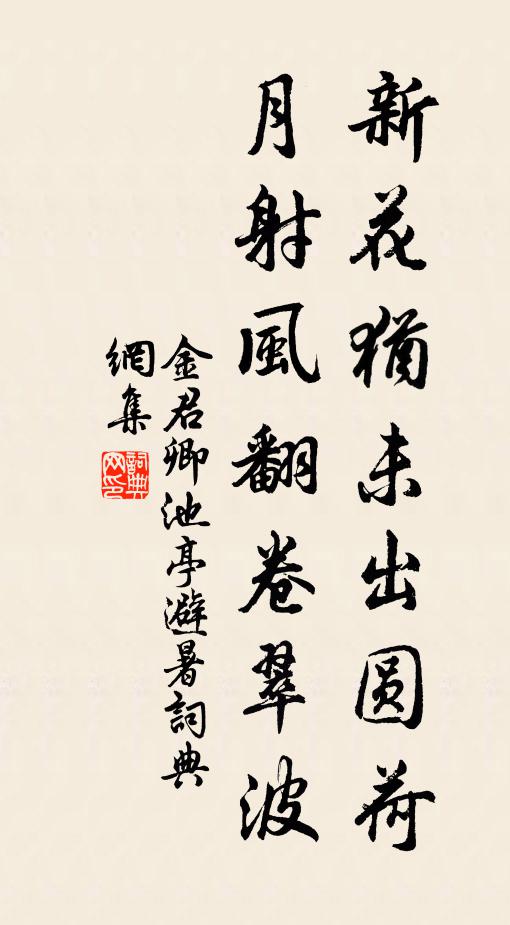 新花猶未出圓荷
月射風翻卷翠波
金君卿池亭避暑詞典
網集
詞典网印